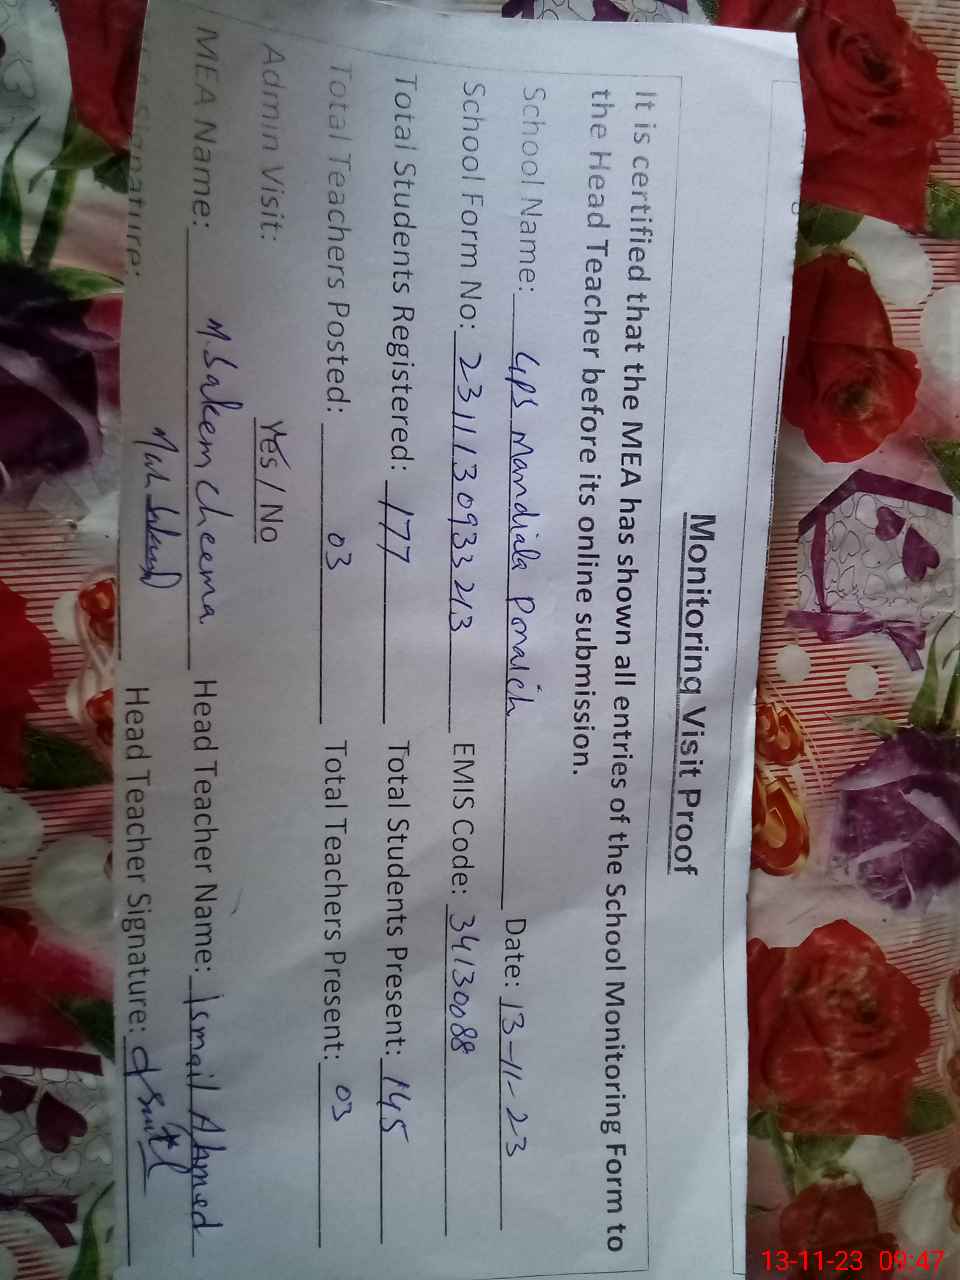 Monitoring Visit Proof
It is certified that the MEA has shown all entries of the School Monitoring Form to
the Head Teacher before its online submission.
School Name: GPS Mandiala Ponaich Date: 13-11-23
School Form No: 2311130933213 EMIS Code: 34130088
Total Students Registered: 177 Total Students Present: 145
Total Teachers Posted: 03 Total Teachers Present: 03
Admin Visit: Yes / No
MEA Name: M. Saleem Cheema Head Teacher Name: Ismail Ahmed
Signature: Head Teacher Signature:
13-11-23 09:47